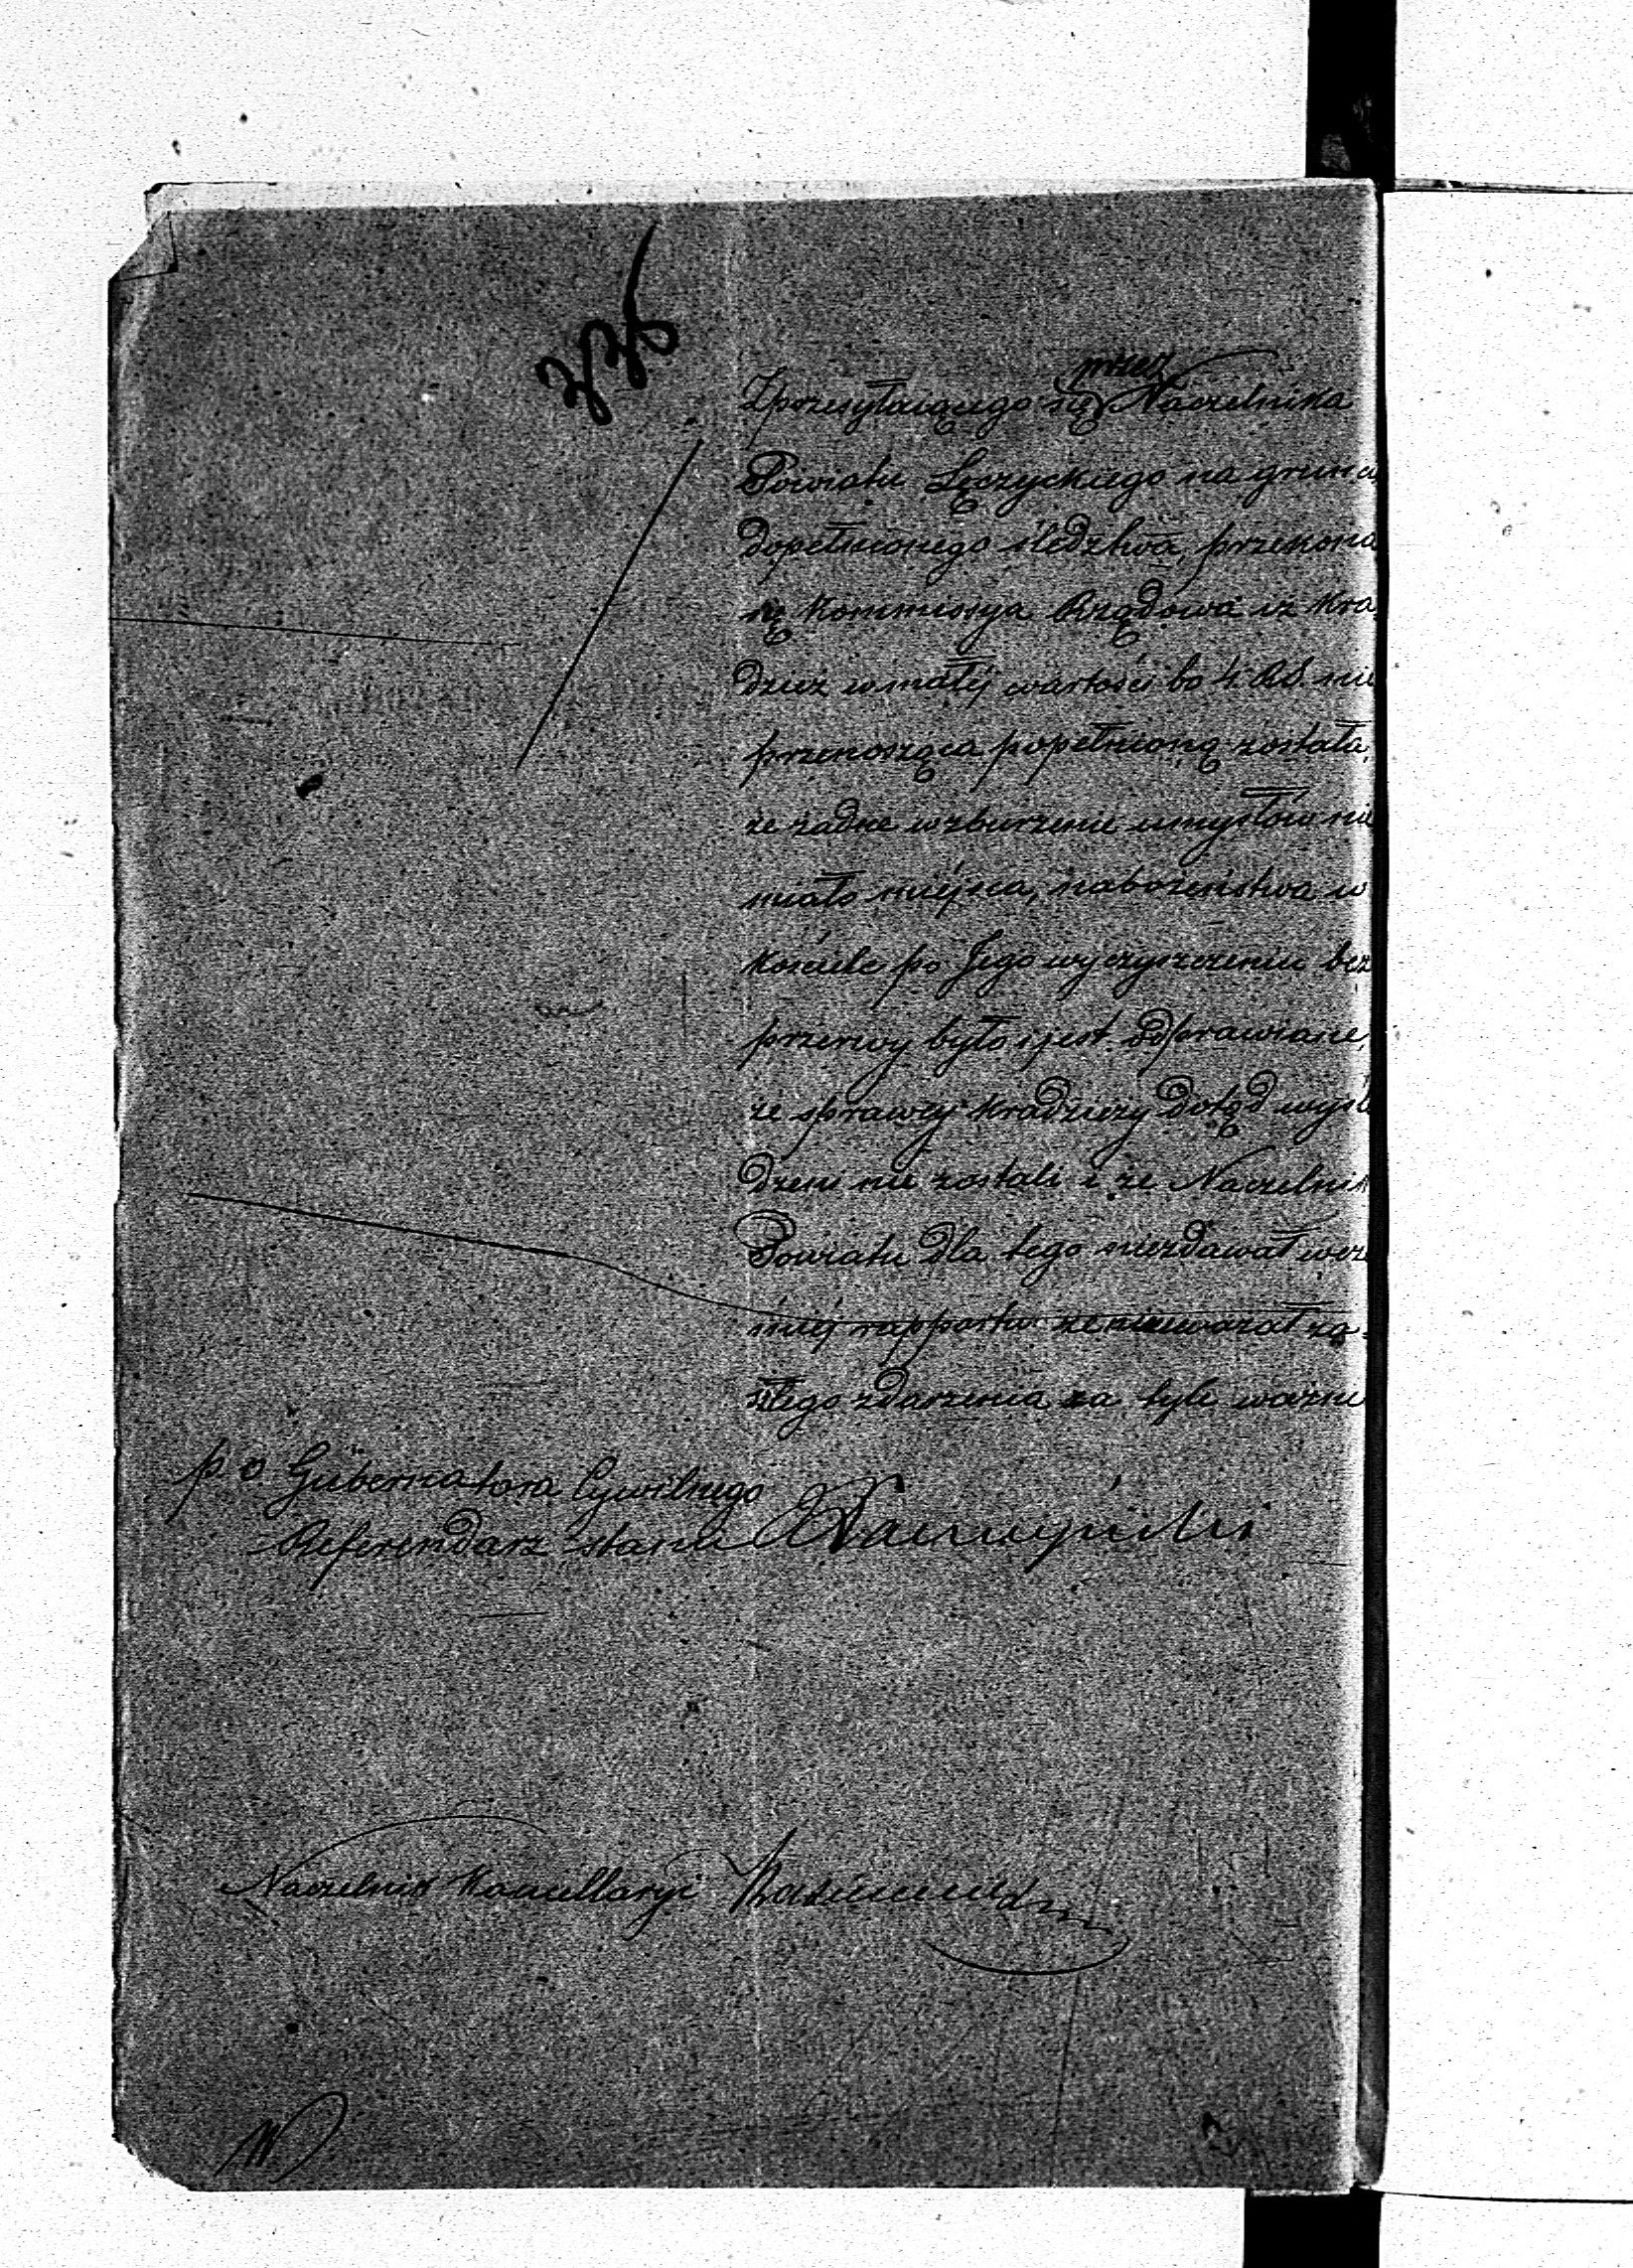 336
przez
Zprzesyłaiącego się Naczelnika
Powiatu Łęczyckiego na grunci
dopełnionego śledztwa, przekona
się Kommissya Rządowa iż kra
dzież wmałéj wartości bo 4 RS. nie
przenosząca popełnioną została,
że żadne wzburzenie umysłów nie
miało miéjsca, nabożeństwa w
Kościele po Jego wyczyszczeniu bez
przerwy było i jest odprawiane,
że sprawcy kradzieży dotąd wyśle
dzeni nie zostali i że Naczelnik
Powiatu dla tego niezdawał wcze
śniéj rapportu że nieuważał za=
szłego zdarzenia za tyle ważne
p. o Gubernatora Cywilnego
Referendarz stanu
Naczelnik Kancellaryi